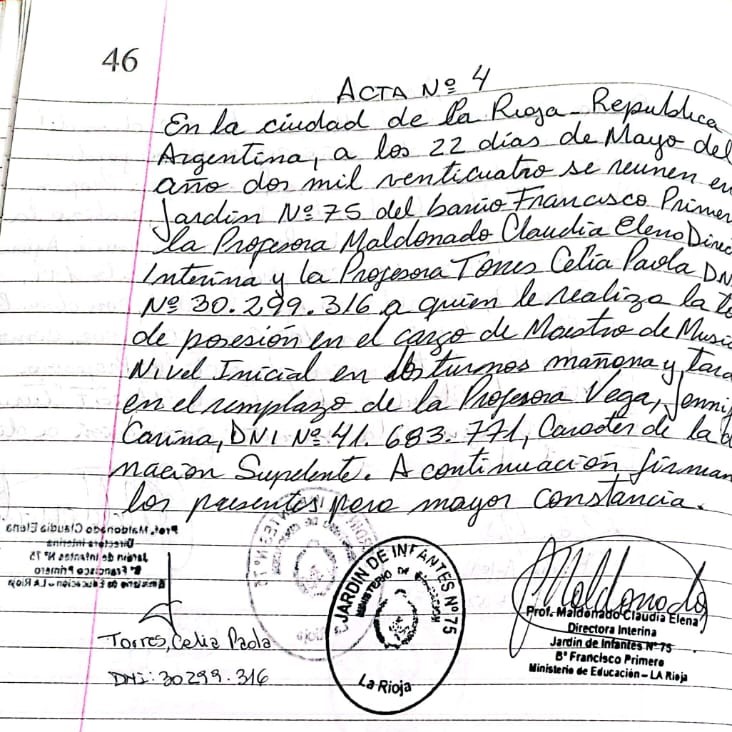 46
ACTA Nº 4
En la ciudad de la Rioja - Republica
Argentina, a los 22 días de Mayo del
año dos mil venticuatro se reunen en
Jardin Nº 75 del barrio Francisco Primer
la Profesora Maldonado Claudia Elena Direc
Interina y la Profesora Torres Celia Paola DN
Nº 30.299.316 a quien le realiza la to
de posesión en el cargo de Maestro de Musi
Nivel Inicial en los turnos mañana y tard
en el remplazo de la Profesora Vega, Jenni
Carina, DNI Nº 41.683.771, Caracter de la d
nacion Suplente. A continuación firman
los presentes para mayor constancia.
Prof. Maldonado Claudia Elena
Directora Interina
Jardin de Infantes Nº 75
Bº Francisco Primero
Ministerio de Educación - LA Rioja
Torres, Celia Paola
DNI: 30299.316
JARDIN DE INFANTES Nº 75
MINISTERIO DE EDUCACION
La Rioja
Maldonado
Prof. Maldonado Claudia Elena
Directora Interina
Jardin de Infantes Nº 75
Bº Francisco Primero
Ministerio de Educación – LA Rioja